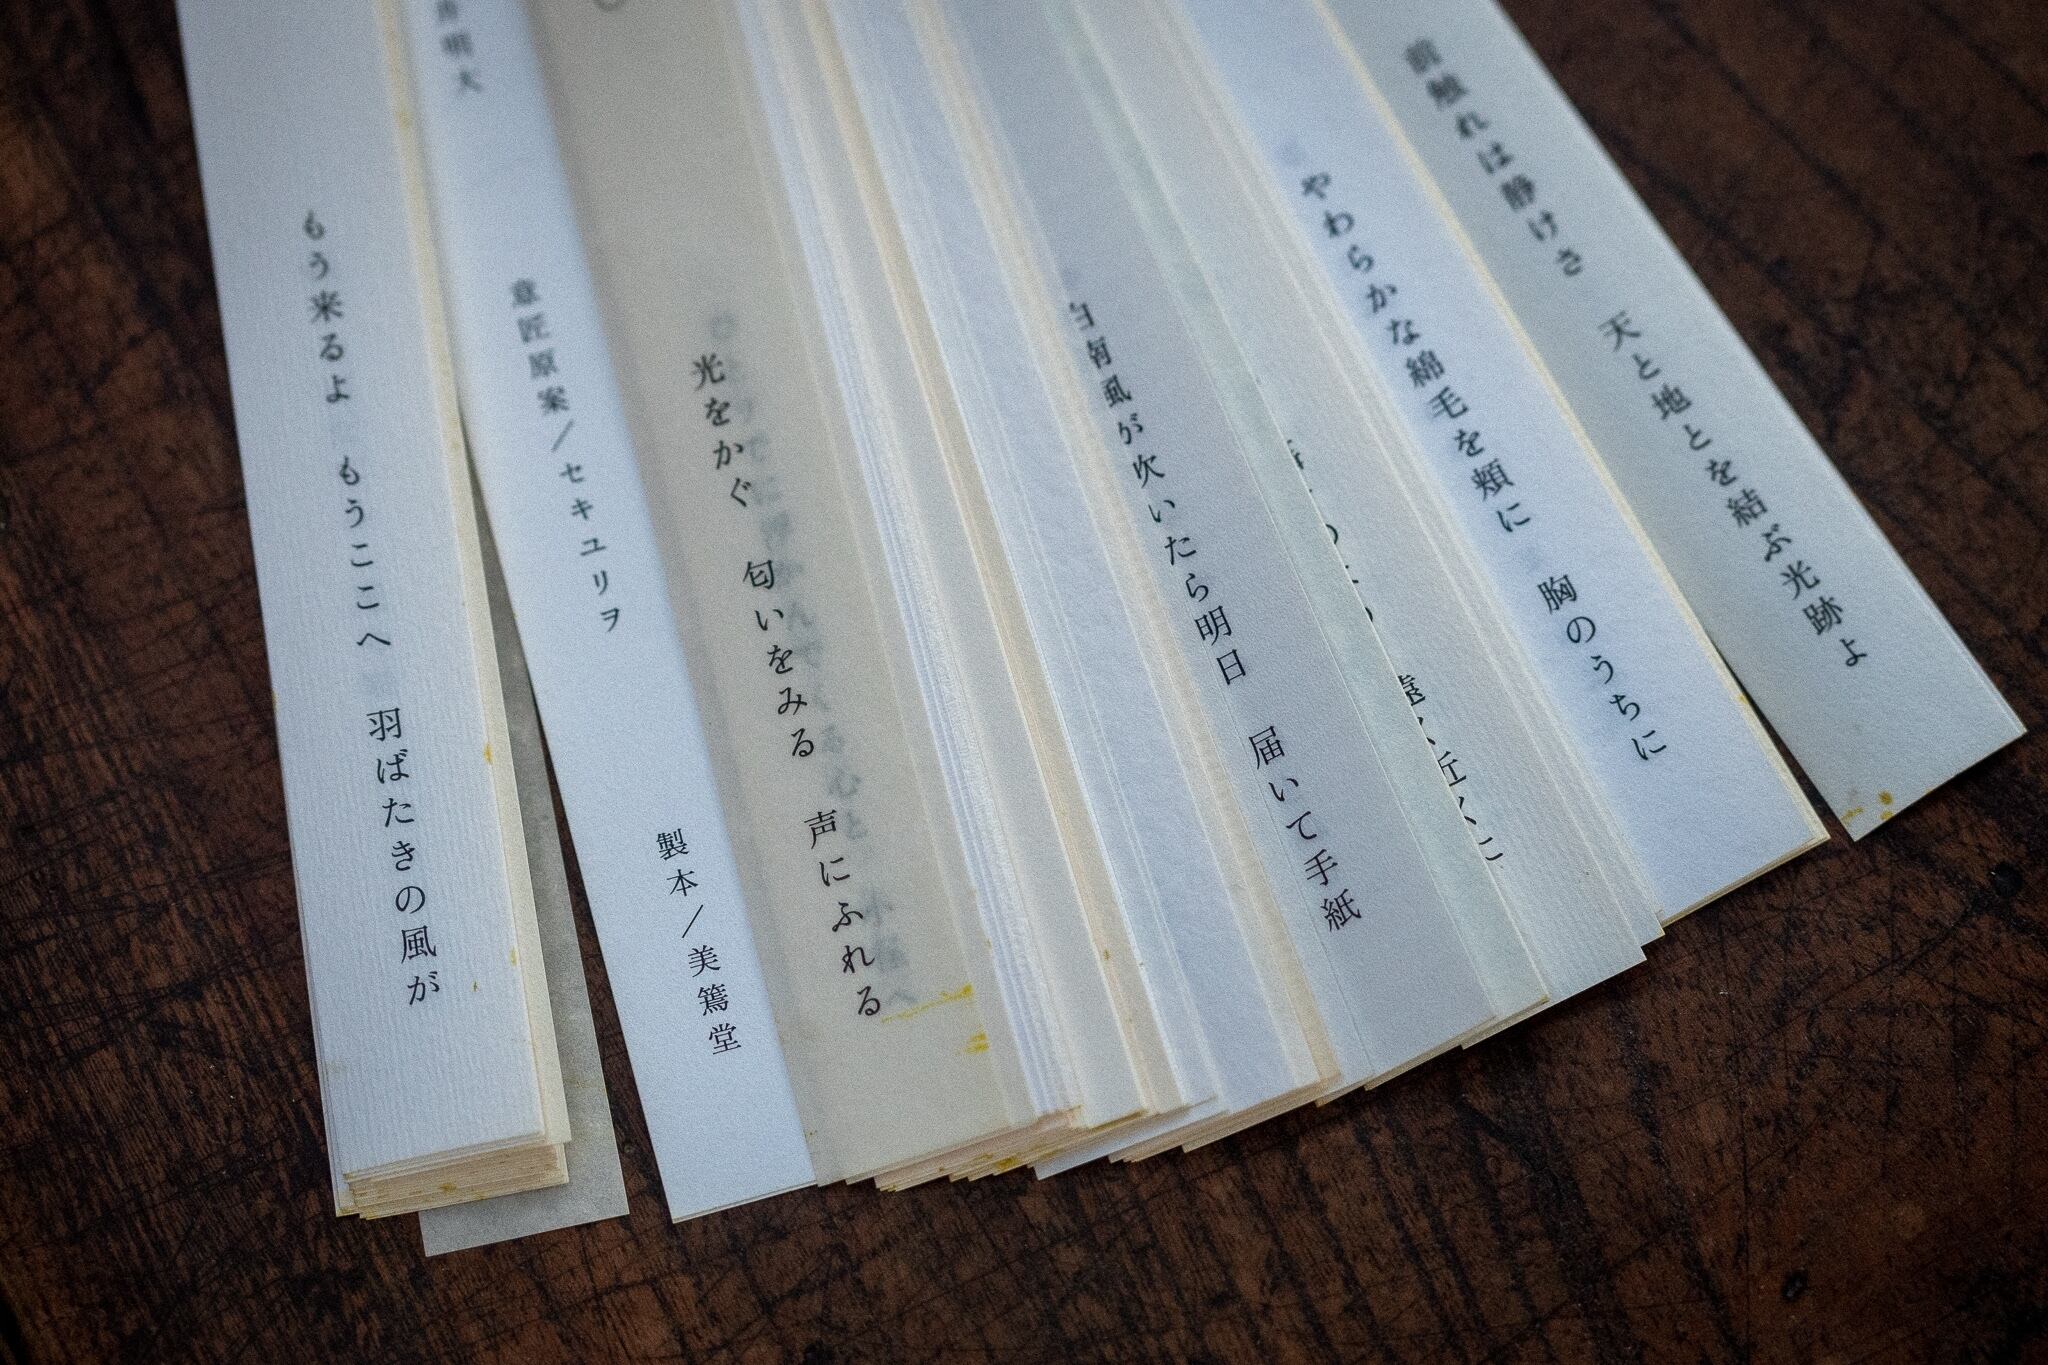 前触れは静けさ　天と地とを結ぶ光跡よ
やわらかな綿毛を頬に　胸のうちに
遠く近くに
白南風が吹いたら明日　届いて手紙
光をかぐ　匂いをみる　声にふれる
明大
意匠原案／セキユリヲ
製本／美篶堂
もう来るよ　もうここへ　羽ばたきの風が